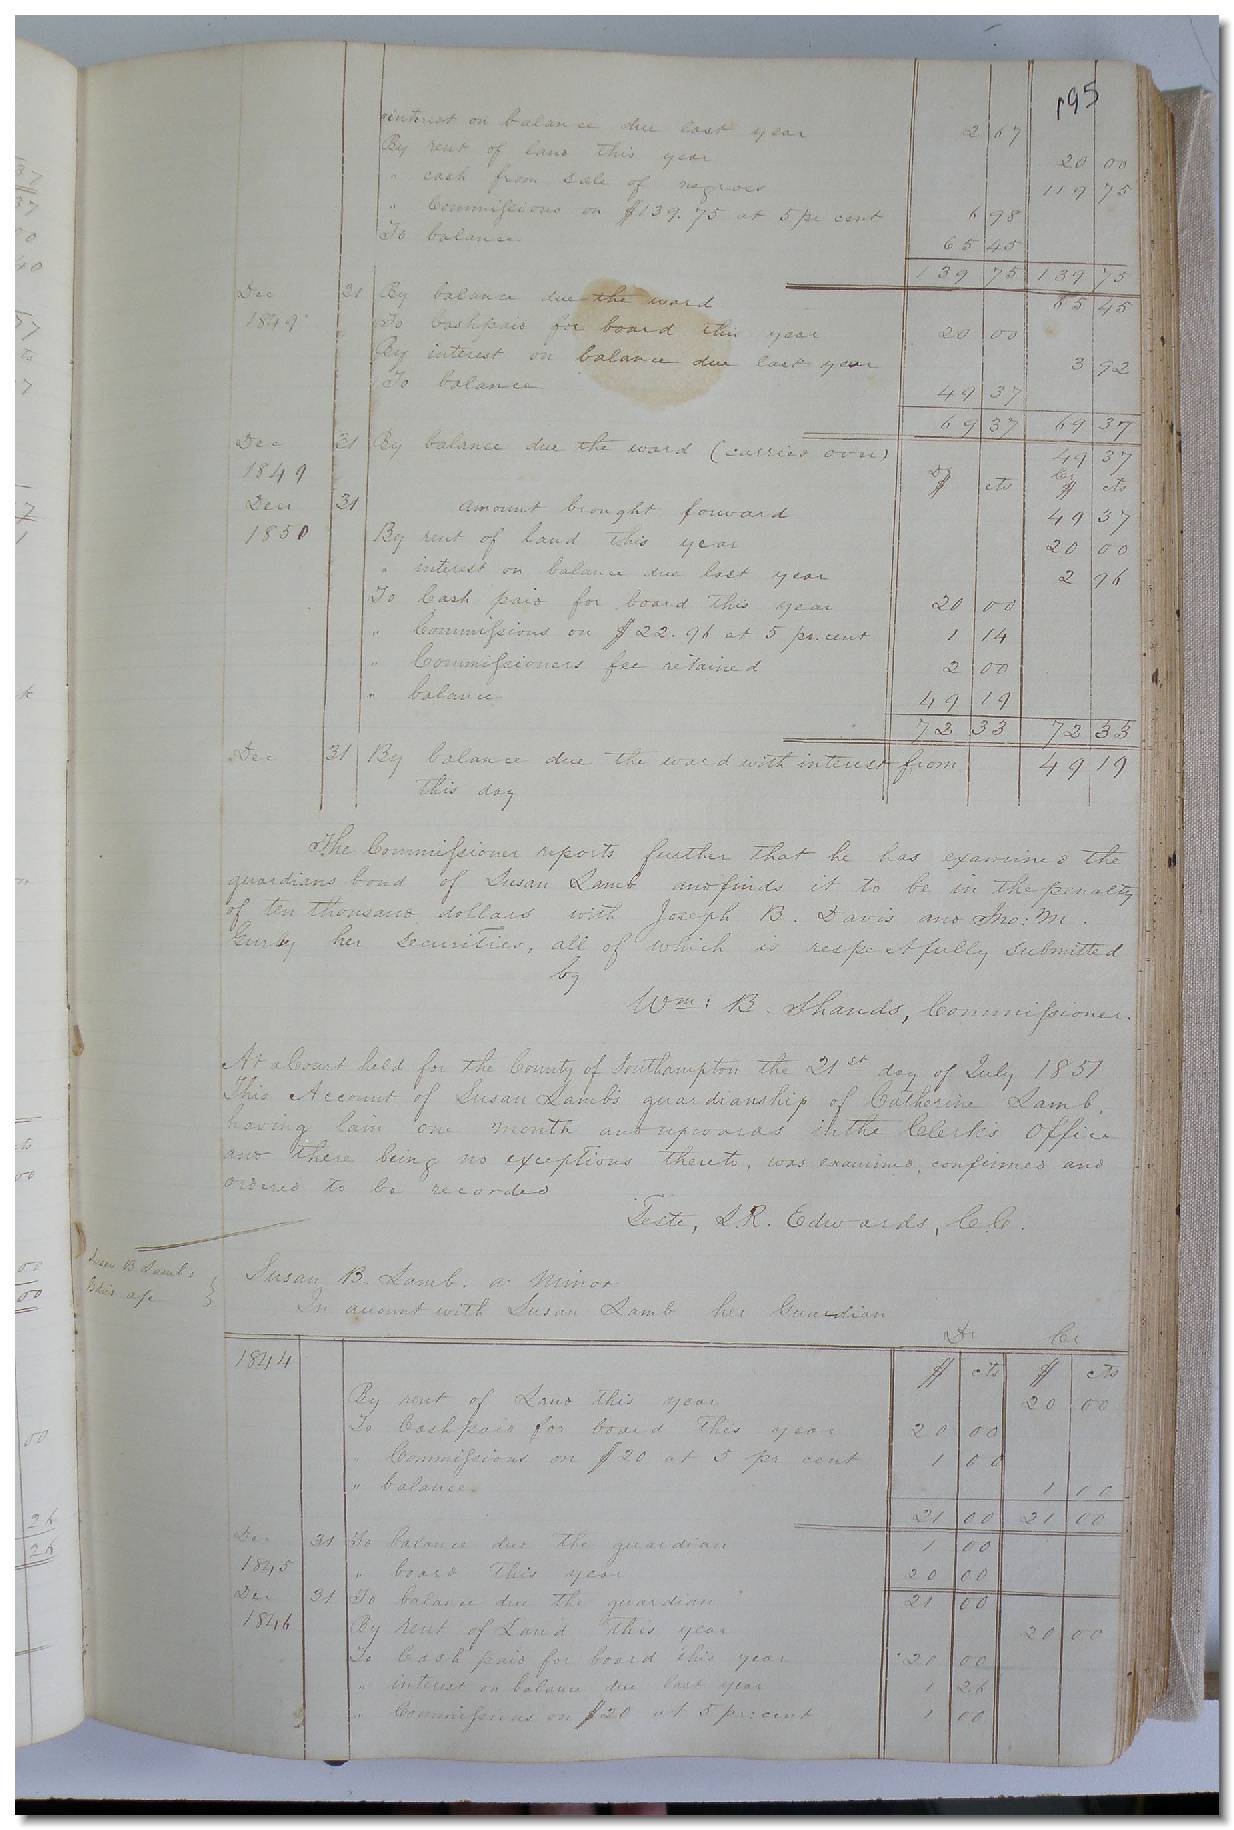 195
interest on balance due last year 2 67
By rent of land this year 20 00
" cash from sale of negroes 119 75
" Commissions on $139.75 at 5 pr cent 6 98
To balance 65 45
139 75 139 75
Dec 31 By balance due the ward 65 45
1849 To Cash paid for board this year 20 00
By interest on balance due last year 3 92
To balance 49 37
69 37 69 37
Dec 31 By balance due the ward (carried over) 49 37
1849 Dr $ cts Cr $ cts
Dec 31 amount brought forward 49 37
1850 By rent of land this year 20 00
" interest on balance due last year 2 96
To Cash paid for board this year 20 00
" Commissions on $22.96 at 5 pr. cent 1 14
" Commissioners fee retained 2 00
" balance 49 19
72 33 72 33
Dec 31 By balance due the ward with interest from 49 19
this day
The Commissioner reports further that he has examined the
guardians bond of Susan Lamb and finds it to be in the penalty
of ten thousand dollars with Joseph B. Davis and Jno: M.
Gurley her securities, all of which is respectfully submitted
by
Wm: B. Shands, Commissioner.
At a Court held for the County of Southampton the 21st day of July 1851
This Account of Susan Lamb's guardianship of Catherine Lamb,
having lain one month and upwards in the Clerk's Office
and there being no exceptions thereto, was examined, confirmed and
ordered to be recorded
Teste, L.R. Edwards, C.C.
Susan B Lamb's
Susan B. Lamb. a Minor
In account with Susan Lamb her Guardian
Dr Cr
1844 $ cts $ cts
By rent of Land this year 20 00
To Cash paid for board this year 20 00
" Commissions on $20 at 5 pr cent 1 00
" balance 1 10
21 00 21 00
Dec 31 To balance due the guardian 1 00
1845 " board this year 20 00
Dec 31 To balance due the guardian 21 00
1846 By rent of Land this year 20 00
To Cash paid for board this year 20 00
" interest on balance due last year 1 26
" Commissions on $20 at 5 pr: cent 1 00